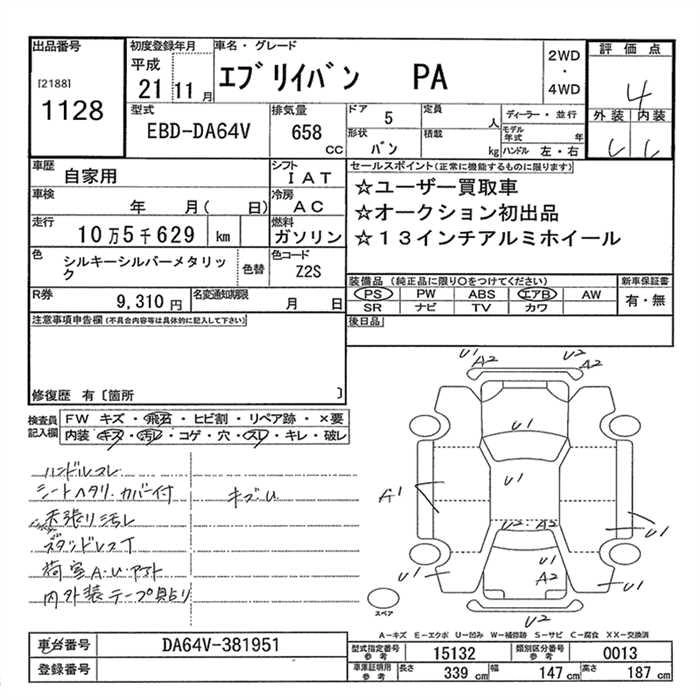 出品番号
[2188]
1128
初度登録年月
平成
21 11 月
車名・グレード
エブリイバン PA
2WD
・
4WD
評価点
4
外装 内装
型式
EBD-DA64V
排気量
658 cc
ドア 5
形状 バン
定員 人
積載 kg
ディーラー・並行
モデル年式 年
ハンドル 左・右
車歴 自家用
シフト IAT
車検 年 月( 日)
冷房 AC
走行 10万5千629 km
燃料 ガソリン
色 シルキーシルバーメタリック
色替
色コード Z2S
R券 9,310 円
名変通知期限 月 日
セールスポイント(正常に機能するものに限ります)
☆ユーザー買取車
☆オークション初出品
☆13インチアルミホイール
装備品(純正品に限り○をつけてください)
PS PW ABS エアB AW
SR ナビ TV カワ
新車保証書
有・無
後日品
注意事項申告欄(不具合内容等は具体的に記入して下さい)
修復歴 有〔箇所 〕
検査員記入欄
FW キズ・飛石・ヒビ割・リペア跡・×要
内装・キズ・汚レ・コゲ・穴・スレ・キレ・破レ
ハンドルスレ
シートヘタリ・カバー付
キズU
天張り汚レ
スタッドレスT
荷室A・U・
内外装テープ貼り
U1 A2 U2 A2
U1
U1
A1
U2・A2
U1
U1
A2
U1
U1
U2
スペア
A-キズ E-エクボ U-凹み W-補修跡 S-サビ C-腐食 XX-交換済
車台番号 DA64V-381951
登録番号
型式指定番号 参考 15132
類別区分番号 参考 0013
車庫証明用 参考 長さ 339 cm 幅 147 cm 高さ 187 cm